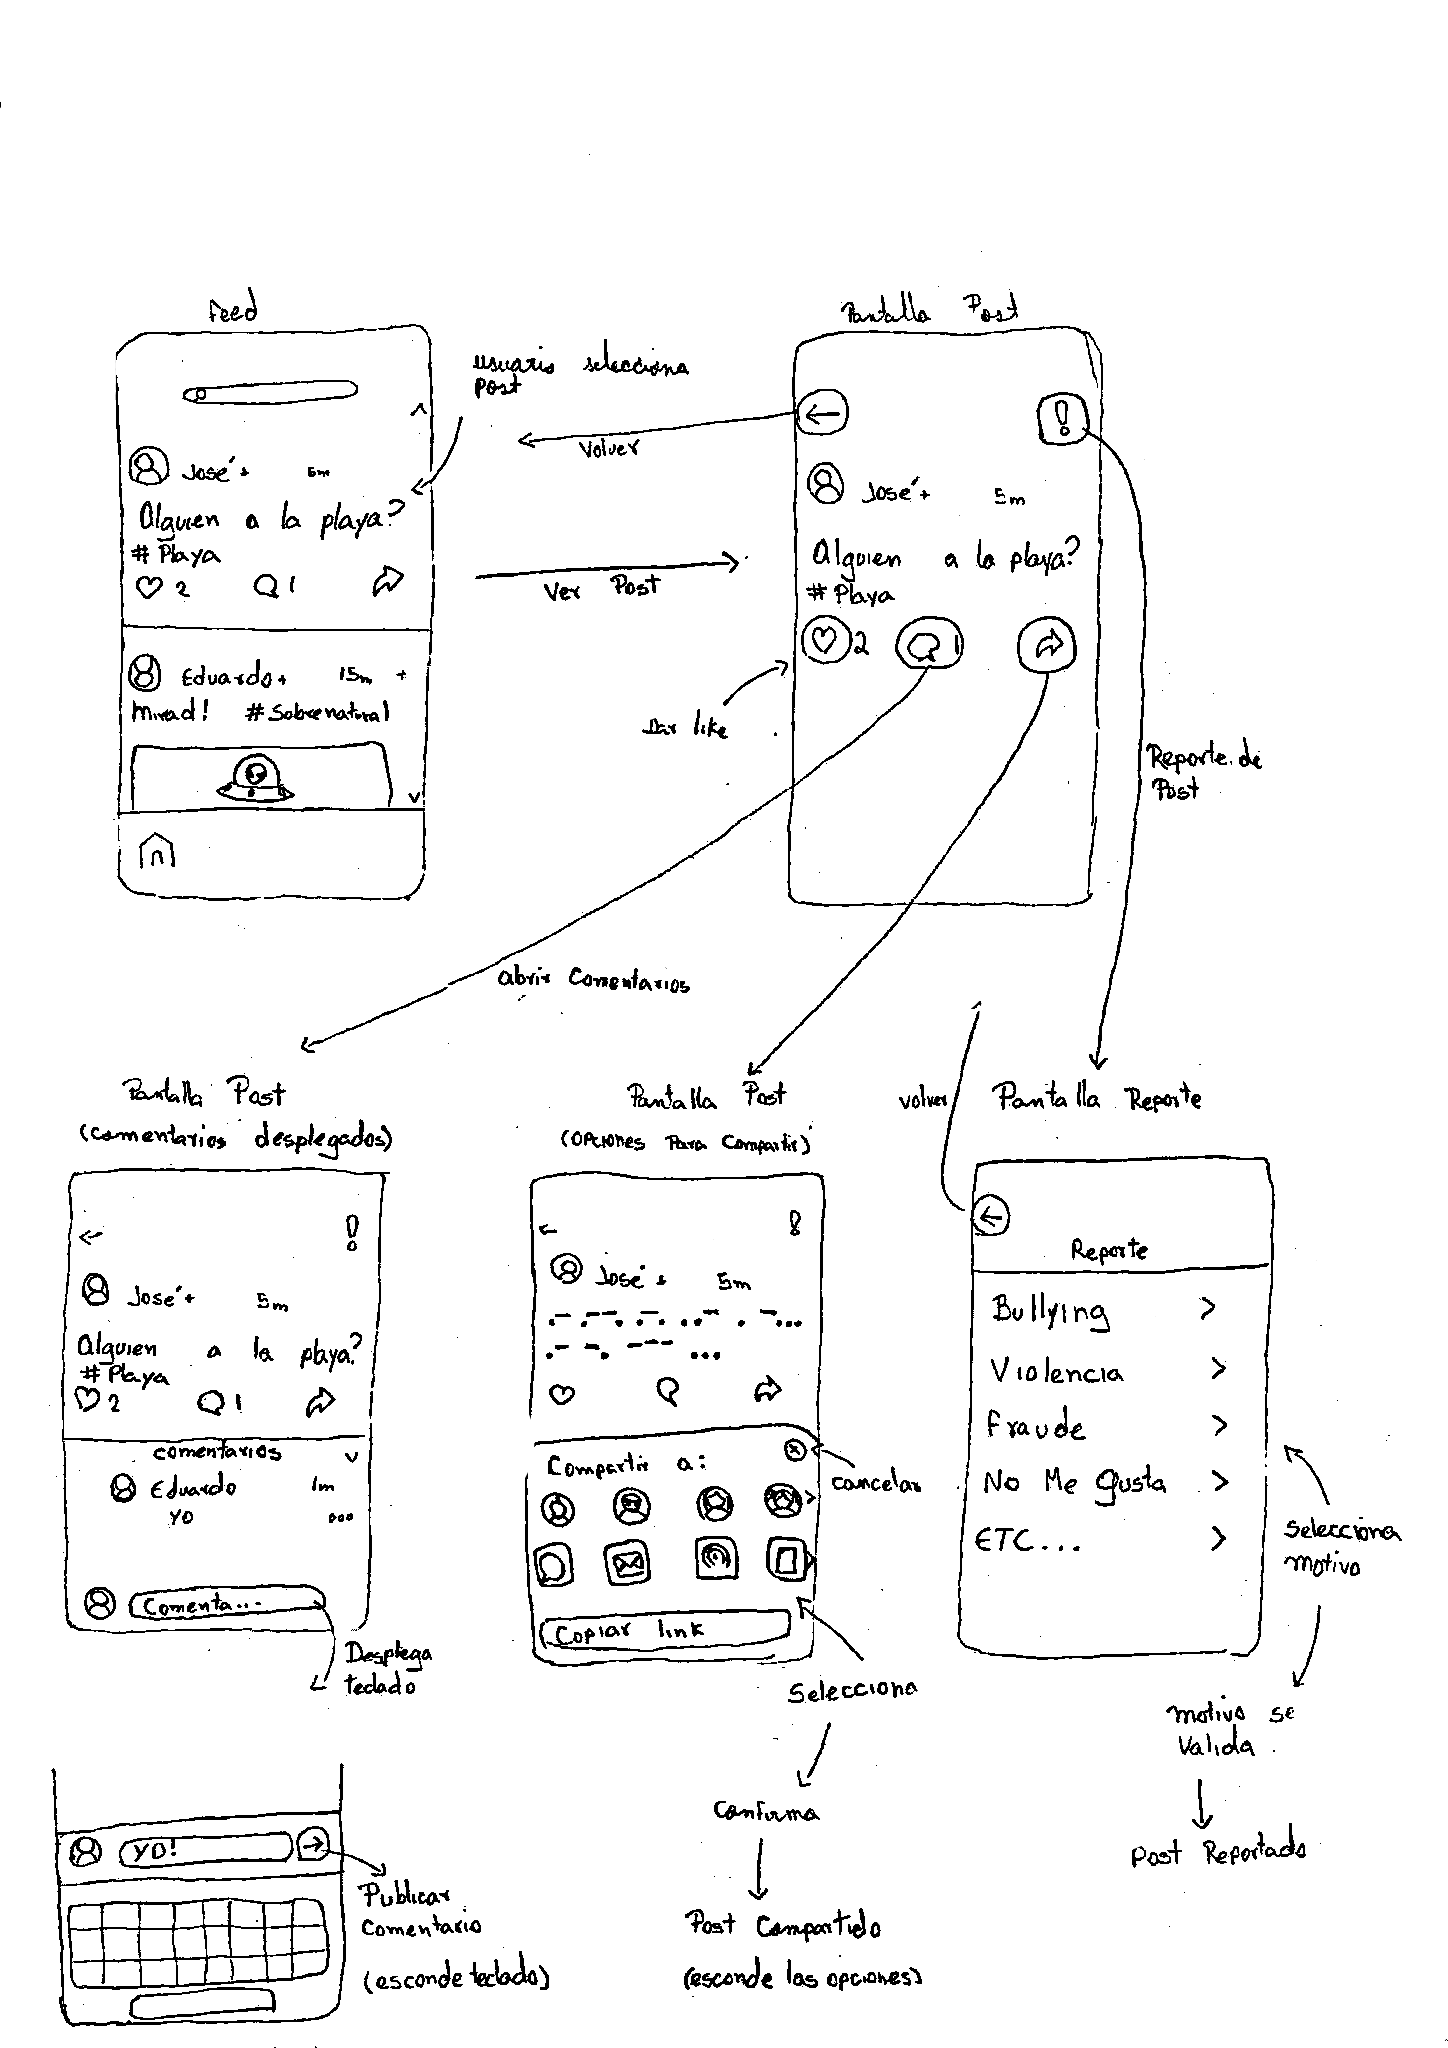 Feed
José+ 5m
Alguien a la playa?
#Playa
2 1
Eduardo+ 15m +
Mirad! #Sobrenatural
usuario selecciona
Post
Volver
Ver Post
Pantalla Post
!
José+ 5m
Alguien a la playa?
#Playa
2 1
Dar like
Reporte de
Post
abrir comentarios
Pantalla Post
(comentarios desplegados)
!
José+ 5m
Alguien a la playa?
#Playa
2 1
comentarios
Eduardo 1m
YO
Comenta...
Desplega
teclado
YO!
Publicar
comentario
(esconde teclado)
Pantalla Post
(OPciones Para Compartir)
!
José+ 5m
Compartir a:
cancelar
Copiar link
Selecciona
Confirma
Post Compartido
(esconde las opciones)
volver
Pantalla Reporte
Reporte
Bullying >
Violencia >
Fraude >
No Me Gusta >
ETC... >
Selecciona
motivo
motivo se
valida
Post Reportado